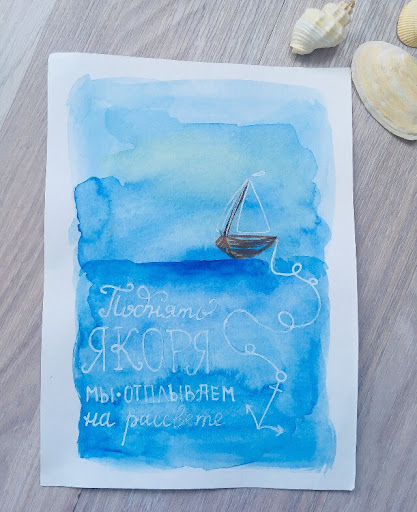 Поднять
ЯКОРЯ
МЫ·ОТПЛЫВАЕМ
на рассвете